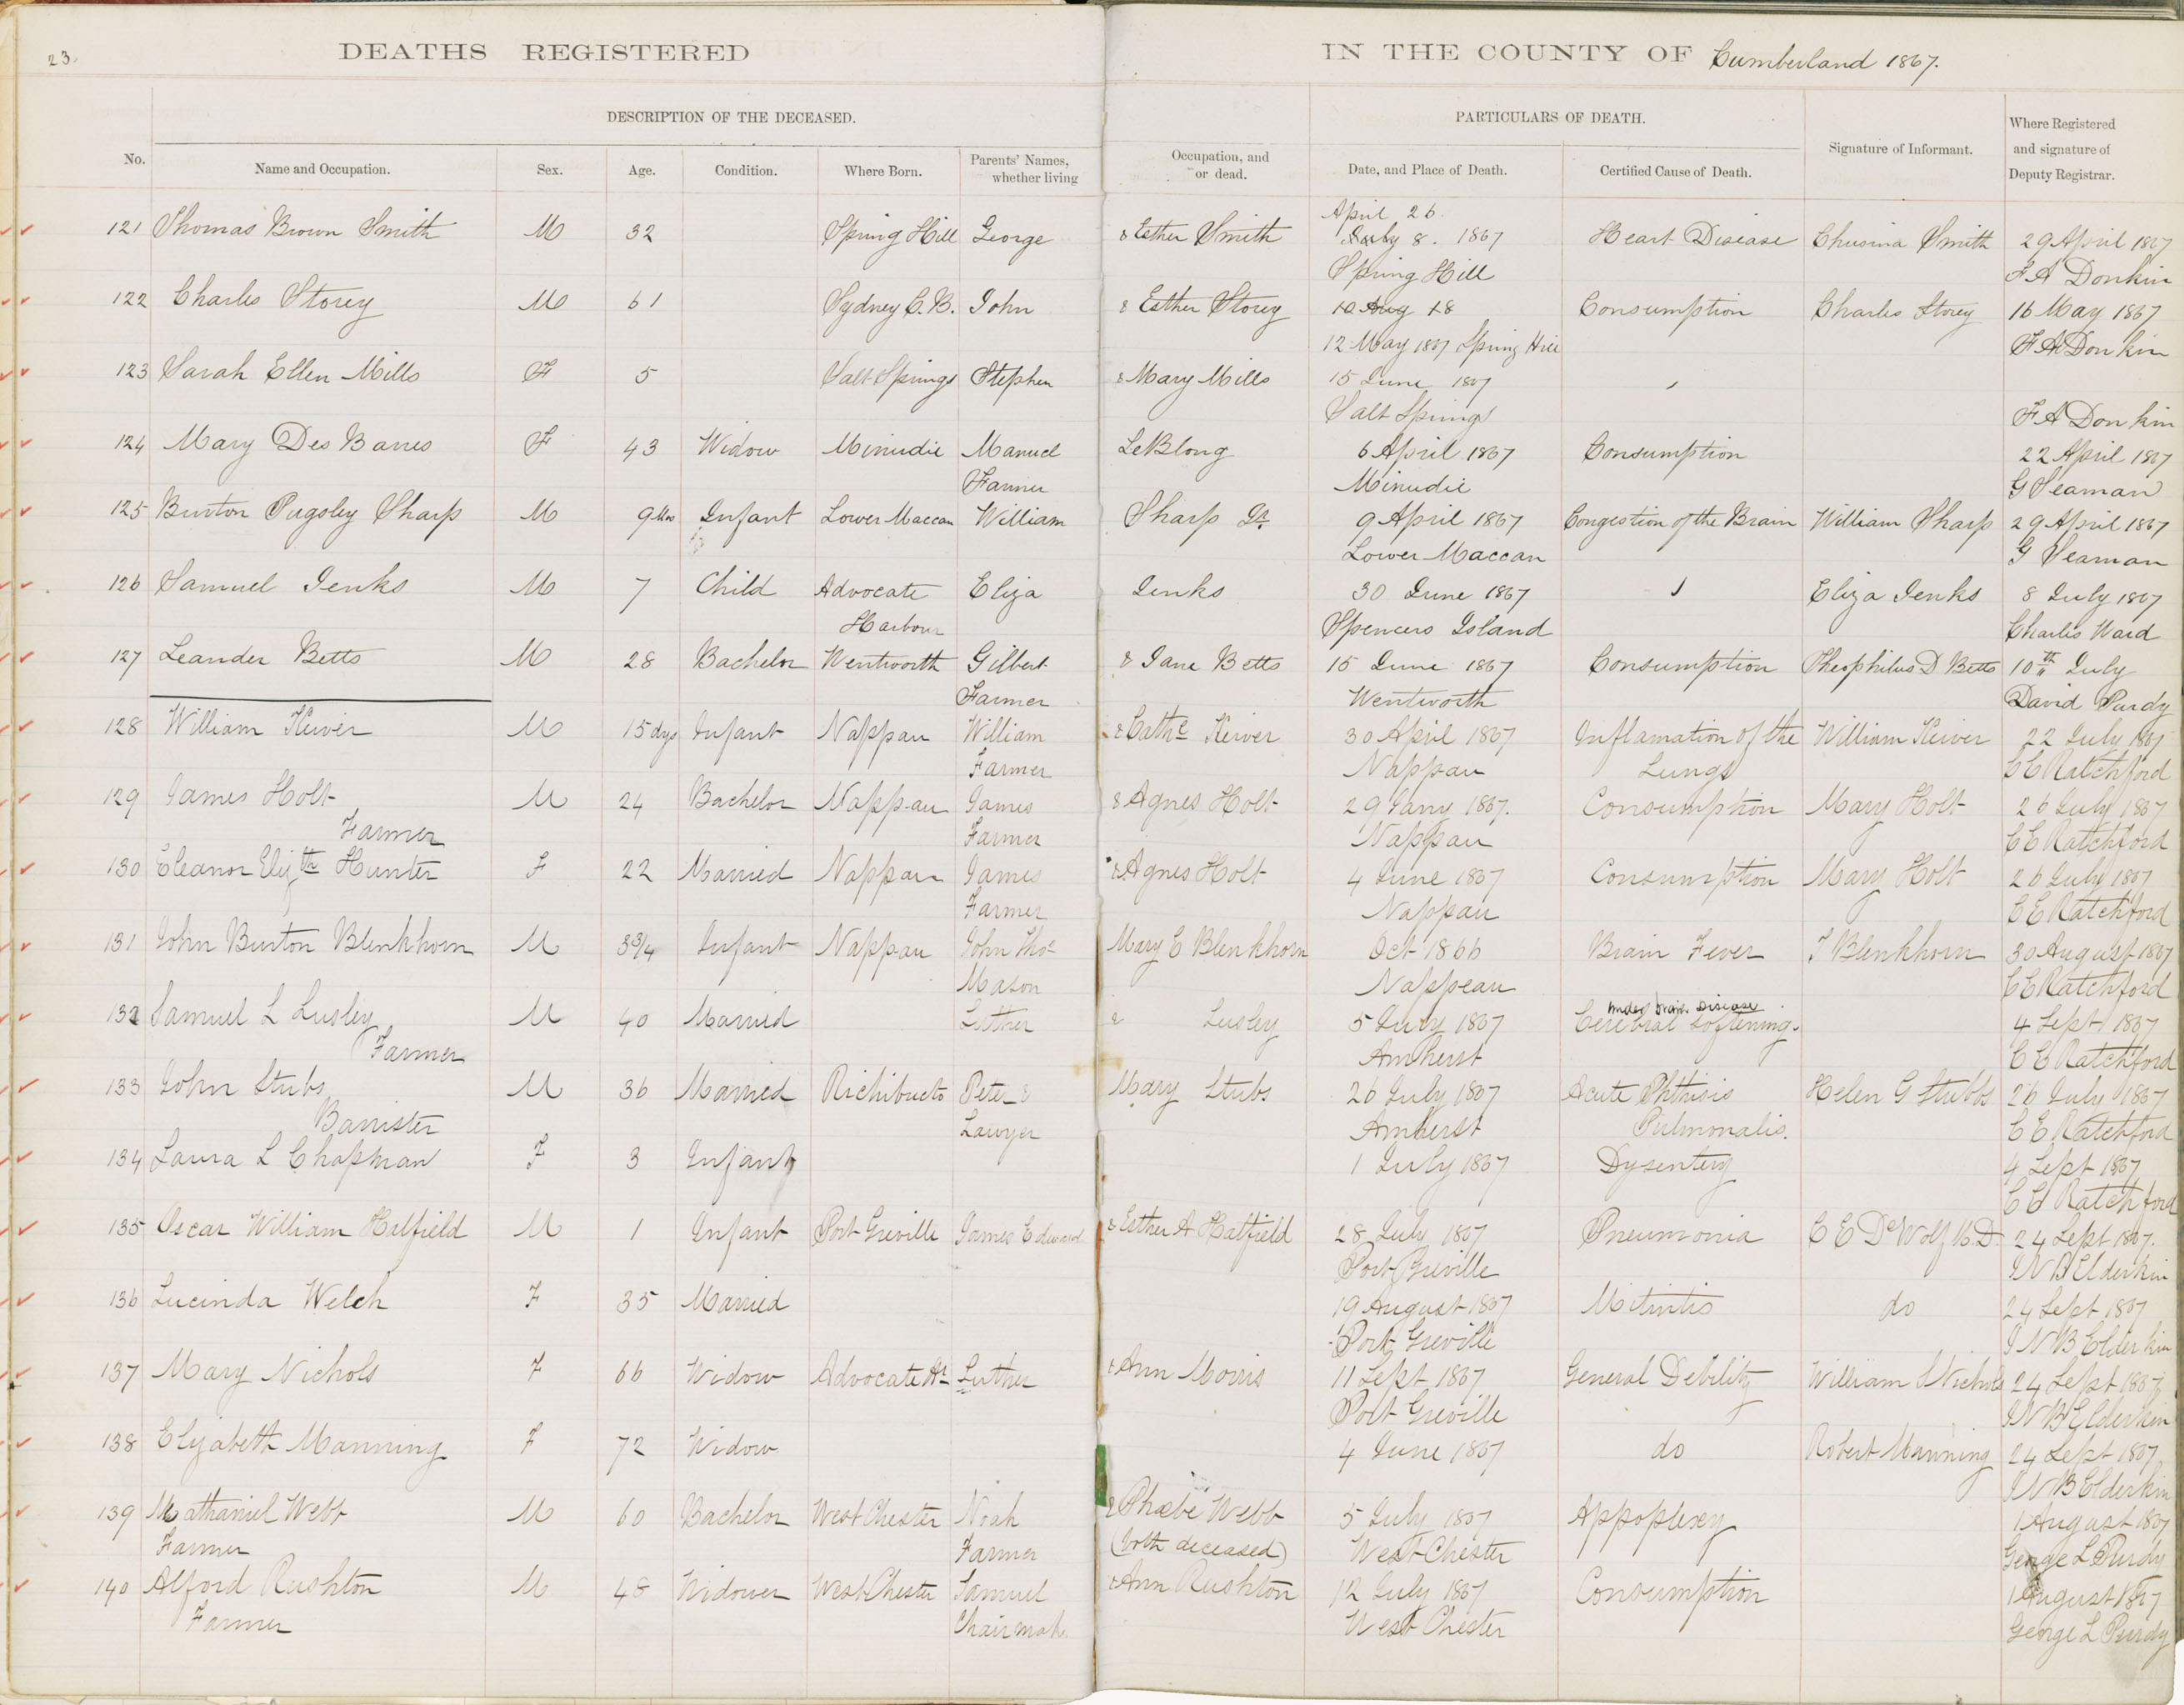 23.
DEATHS REGISTERED IN THE COUNTY OF Cumberland 1867.
DESCRIPTION OF THE DECEASED. PARTICULARS OF DEATH.
No. Name and Occupation. Sex. Age. Condition. Where Born. Parents' Names, whether living Occupation, and or dead. Date, and Place of Death. Certified Cause of Death. Signature of Informant. Where Registered and signature of Deputy Registrar.
April 26
121 Thomas Brown Smith M 32 Spring Hill George & Esther Smith July 8. 1867 Heart Disease Smith 29 April 1867
Spring Hill F A Donkin
122 Charles Storey M 61 Sydney C.B. John & Esther Storey 10 Aug 18 Consumption Charles Storey 16 May 1867
12 May 1867 Spring Hill F A Donkin
123 Sarah Ellen Mills F 5 Salt Springs Stephen & Mary Mills 15 June 1867
Salt Springs F A Donkin
124 Mary Des Barres F 43 Widow Minudie Manuel LeBlong 6 April 1867 Consumption 22 April 1867
Farmer Minudie G Seaman
125 Burton Pugsley Sharp M 9 Mos Infant Lower Maccan William Sharp Jr. 9 April 1867 Congestion of the Brain William Sharp 29 April 1867
Lower Maccan G Seaman
126 Samuel Jenks M 7 Child Advocate Eliza Jenks 30 June 1867 Eliza Jenks 8 July 1867
Harbour Spencers Island Charles Ward
127 Leander Betts M 28 Bachelor Wentworth Gilbert & Jane Betts 15 June 1867 Consumption Theophilus D Betts 10th July
Farmer Wentworth David Purdy
128 William Keiver M 15 dys Infant Nappan William & Cathe Keiver 30 April 1867 Inflamation of the William Keiver 22 July 1867
Farmer Nappan Lungs C E Ratchford
129 James Holt M 24 Bachelor Nappan James & Agnes Holt 29 Jany 1867. Consumption Mary Holt 26 July 1867
Farmer Farmer Nappan C E Ratchford
130 Eleanor Elizth Hunter F 22 Married Nappan James & Agnes Holt 4 June 1867 Consumption Mary Holt 26 July 1867
Farmer Nappan C E Ratchford
131 John Burton Blenkhorn M 3 3/4 Infant Nappan John Thos Mary E Blenkhorn Oct 1866 Brain Fever T Blenkhorn 30 August 1867
Mason Nappean C E Ratchford
132 Samuel L Lusley M 40 Married Luther & Lusley 5 July 1867 Cerebral Softening. 4 Sept 1867
Farmer Amherst C E Ratchford
133 John Stubs M 36 Married Richibucto Peter & Mary Stubs 26 July 1867 Acute Phthisis Helen G Stubbs 26 July 1867
Barrister Lawyer Amherst Pulmonalis. C E Ratchford
134 Laura L Chapman F 3 Infant 1 July 1867 Dysentery 4 Sept 1867
C E Ratchford
135 Oscar William Hatfield M 1 Infant Port Greville James Edward & Esther A Hatfield 28 July 1867 Pneumonia C E DeWolf M.D. 24 Sept 1867.
Port Greville J N B Elderkin
136 Lucinda Welch F 35 Married 19 August 1867 Mitintis do 24 Sept 1867
Port Greville J N B Elderkin
137 Mary Nichols F 66 Widow Advocate Hr Luther & Ann Morris 11 Sept 1867 General Debility William Nichols 24 Sept 1867
Port Greville J N B Elderkin
138 Elizabeth Manning F 72 Widow 4 June 1867 do Robert Manning 24 Sept 1867
J N B Elderkin
139 Nathaniel Webb M 60 Bachelor West Chester Noah & Phœbe Webb 5 July 1867 Appoplexy 1 August 1867
Farmer Farmer (both deceased) West Chester George L Purdy
140 Alford Rushton M 48 Widower West Chester Samuel & Ann Rushton 12 July 1867 Consumption 1 August 1867
Farmer Chair mak. West Chester George L Purdy